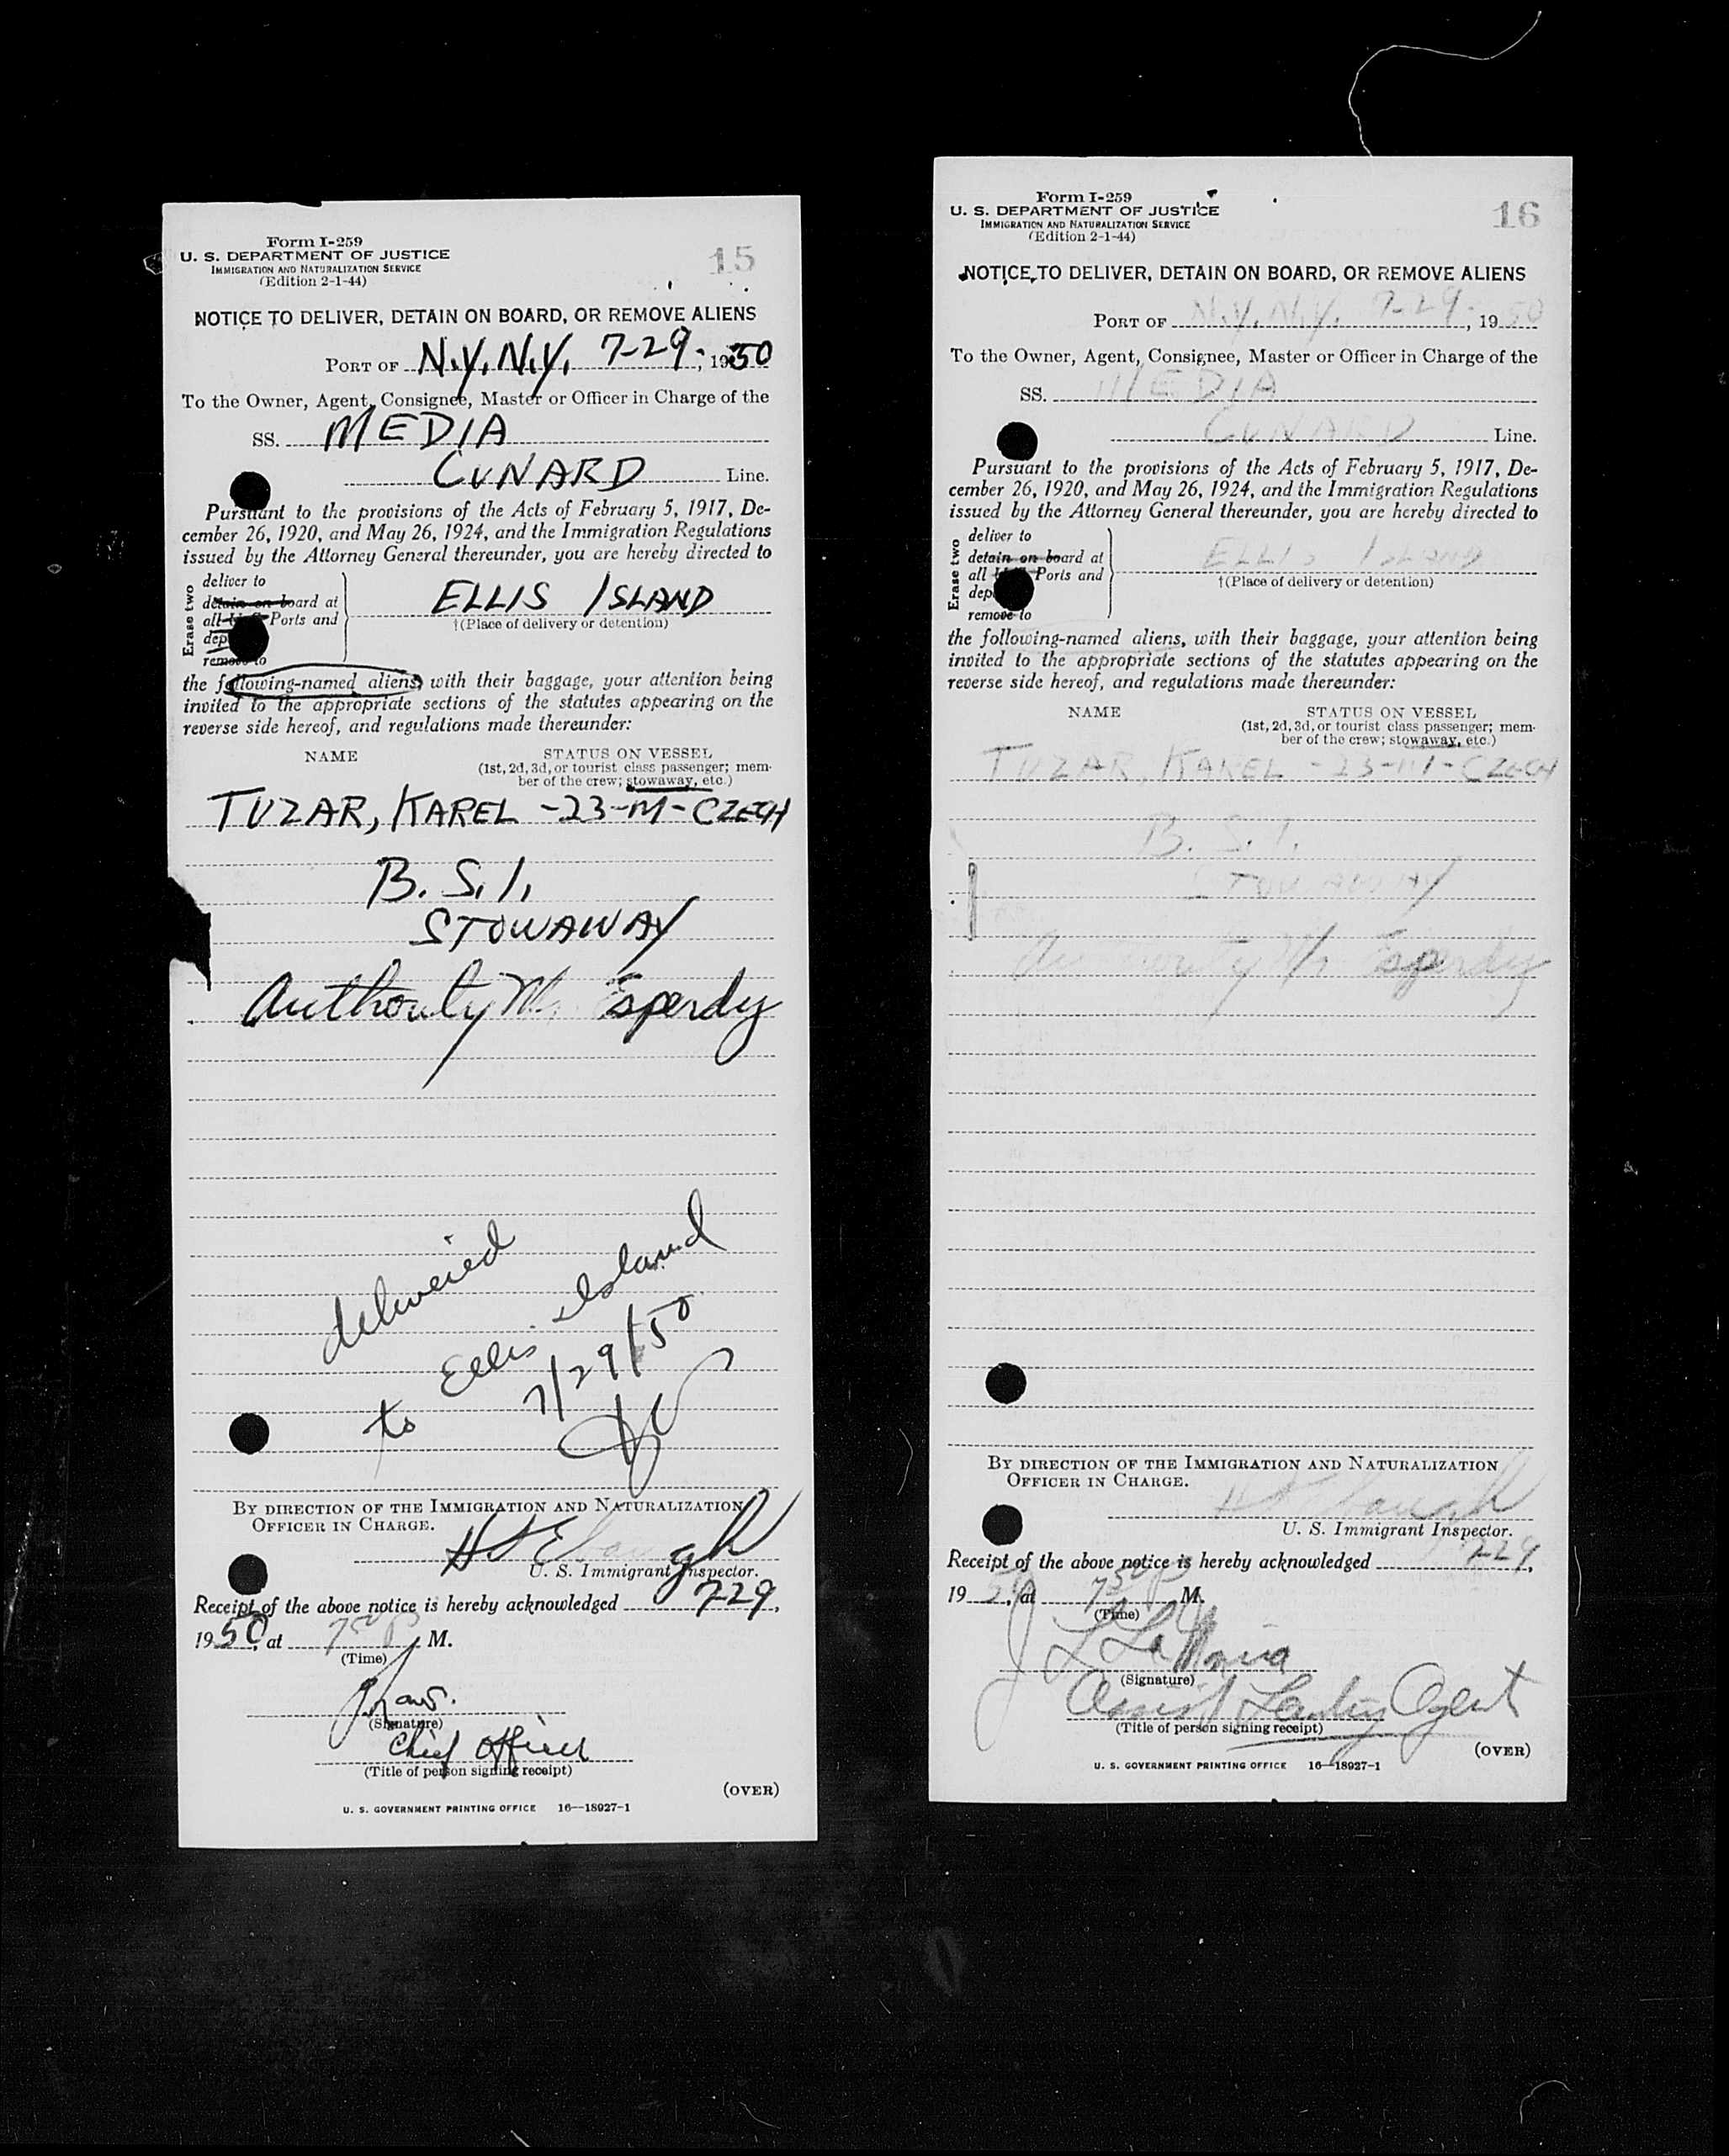 Form I-259
U. S. DEPARTMENT OF JUSTICE
IMMIGRATION AND NATURALIZATION SERVICE
(Edition 2-1-44)
15
NOTICE TO DELIVER, DETAIN ON BOARD, OR REMOVE ALIENS
PORT OF N.Y. N.Y. 7-29-, 1950
To the Owner, Agent, Consignee, Master or Officer in Charge of the
SS. MEDIA
CUNARD Line.
Pursuant to the provisions of the Acts of February 5, 1917, De-
cember 26, 1920, and May 26, 1924, and the Immigration Regulations
issued by the Attorney General thereunder, you are hereby directed to
Erase two
deliver to
detain on board at
all U S Ports and
dep
remove to
ELLIS ISLAND
†(Place of delivery or detention)
the following-named aliens, with their baggage, your attention being
invited to the appropriate sections of the statutes appearing on the
reverse side hereof, and regulations made thereunder:
NAME STATUS ON VESSEL
(1st, 2d, 3d, or tourist class passenger; mem-
ber of the crew; stowaway, etc.)
TUZAR, KAREL -23-M-CZECH
B. S. I.
STOWAWAY
Authority Mr. Esperdy
delivered
to Ellis Island
7/29/50
BY DIRECTION OF THE IMMIGRATION AND NATURALIZATION
OFFICER IN CHARGE.
U. S. Immigrant Inspector.
Receipt of the above notice is hereby acknowledged 729,
1950, at 750 P M.
(Time)
(Signature)
Chief Officer
(Title of person signing receipt)
(OVER)
U. S. GOVERNMENT PRINTING OFFICE 16—18927-1
Form I-259
U. S. DEPARTMENT OF JUSTICE
IMMIGRATION AND NATURALIZATION SERVICE
(Edition 2-1-44)
16
NOTICE TO DELIVER, DETAIN ON BOARD, OR REMOVE ALIENS
PORT OF N.Y. N.Y. 7-29-, 1950
To the Owner, Agent, Consignee, Master or Officer in Charge of the
SS. MEDIA
CUNARD Line.
Pursuant to the provisions of the Acts of February 5, 1917, De-
cember 26, 1920, and May 26, 1924, and the Immigration Regulations
issued by the Attorney General thereunder, you are hereby directed to
Erase two
deliver to
detain on board at
all U Ports and
dep
remove to
ELLIS ISLAND
†(Place of delivery or detention)
the following-named aliens, with their baggage, your attention being
invited to the appropriate sections of the statutes appearing on the
reverse side hereof, and regulations made thereunder:
NAME STATUS ON VESSEL
(1st, 2d, 3d, or tourist class passenger; mem-
ber of the crew; stowaway, etc.)
TUZAR, KAREL -23-M-CZECH
B. S. I.
STOWAWAY
Authority Mr. Esperdy
BY DIRECTION OF THE IMMIGRATION AND NATURALIZATION
OFFICER IN CHARGE.
U. S. Immigrant Inspector.
Receipt of the above notice is hereby acknowledged 729,
1950, at 750 P M.
(Time)
(Signature)
Asst Landing Agent
(Title of person signing receipt)
(OVER)
U. S. GOVERNMENT PRINTING OFFICE 16—18927-1